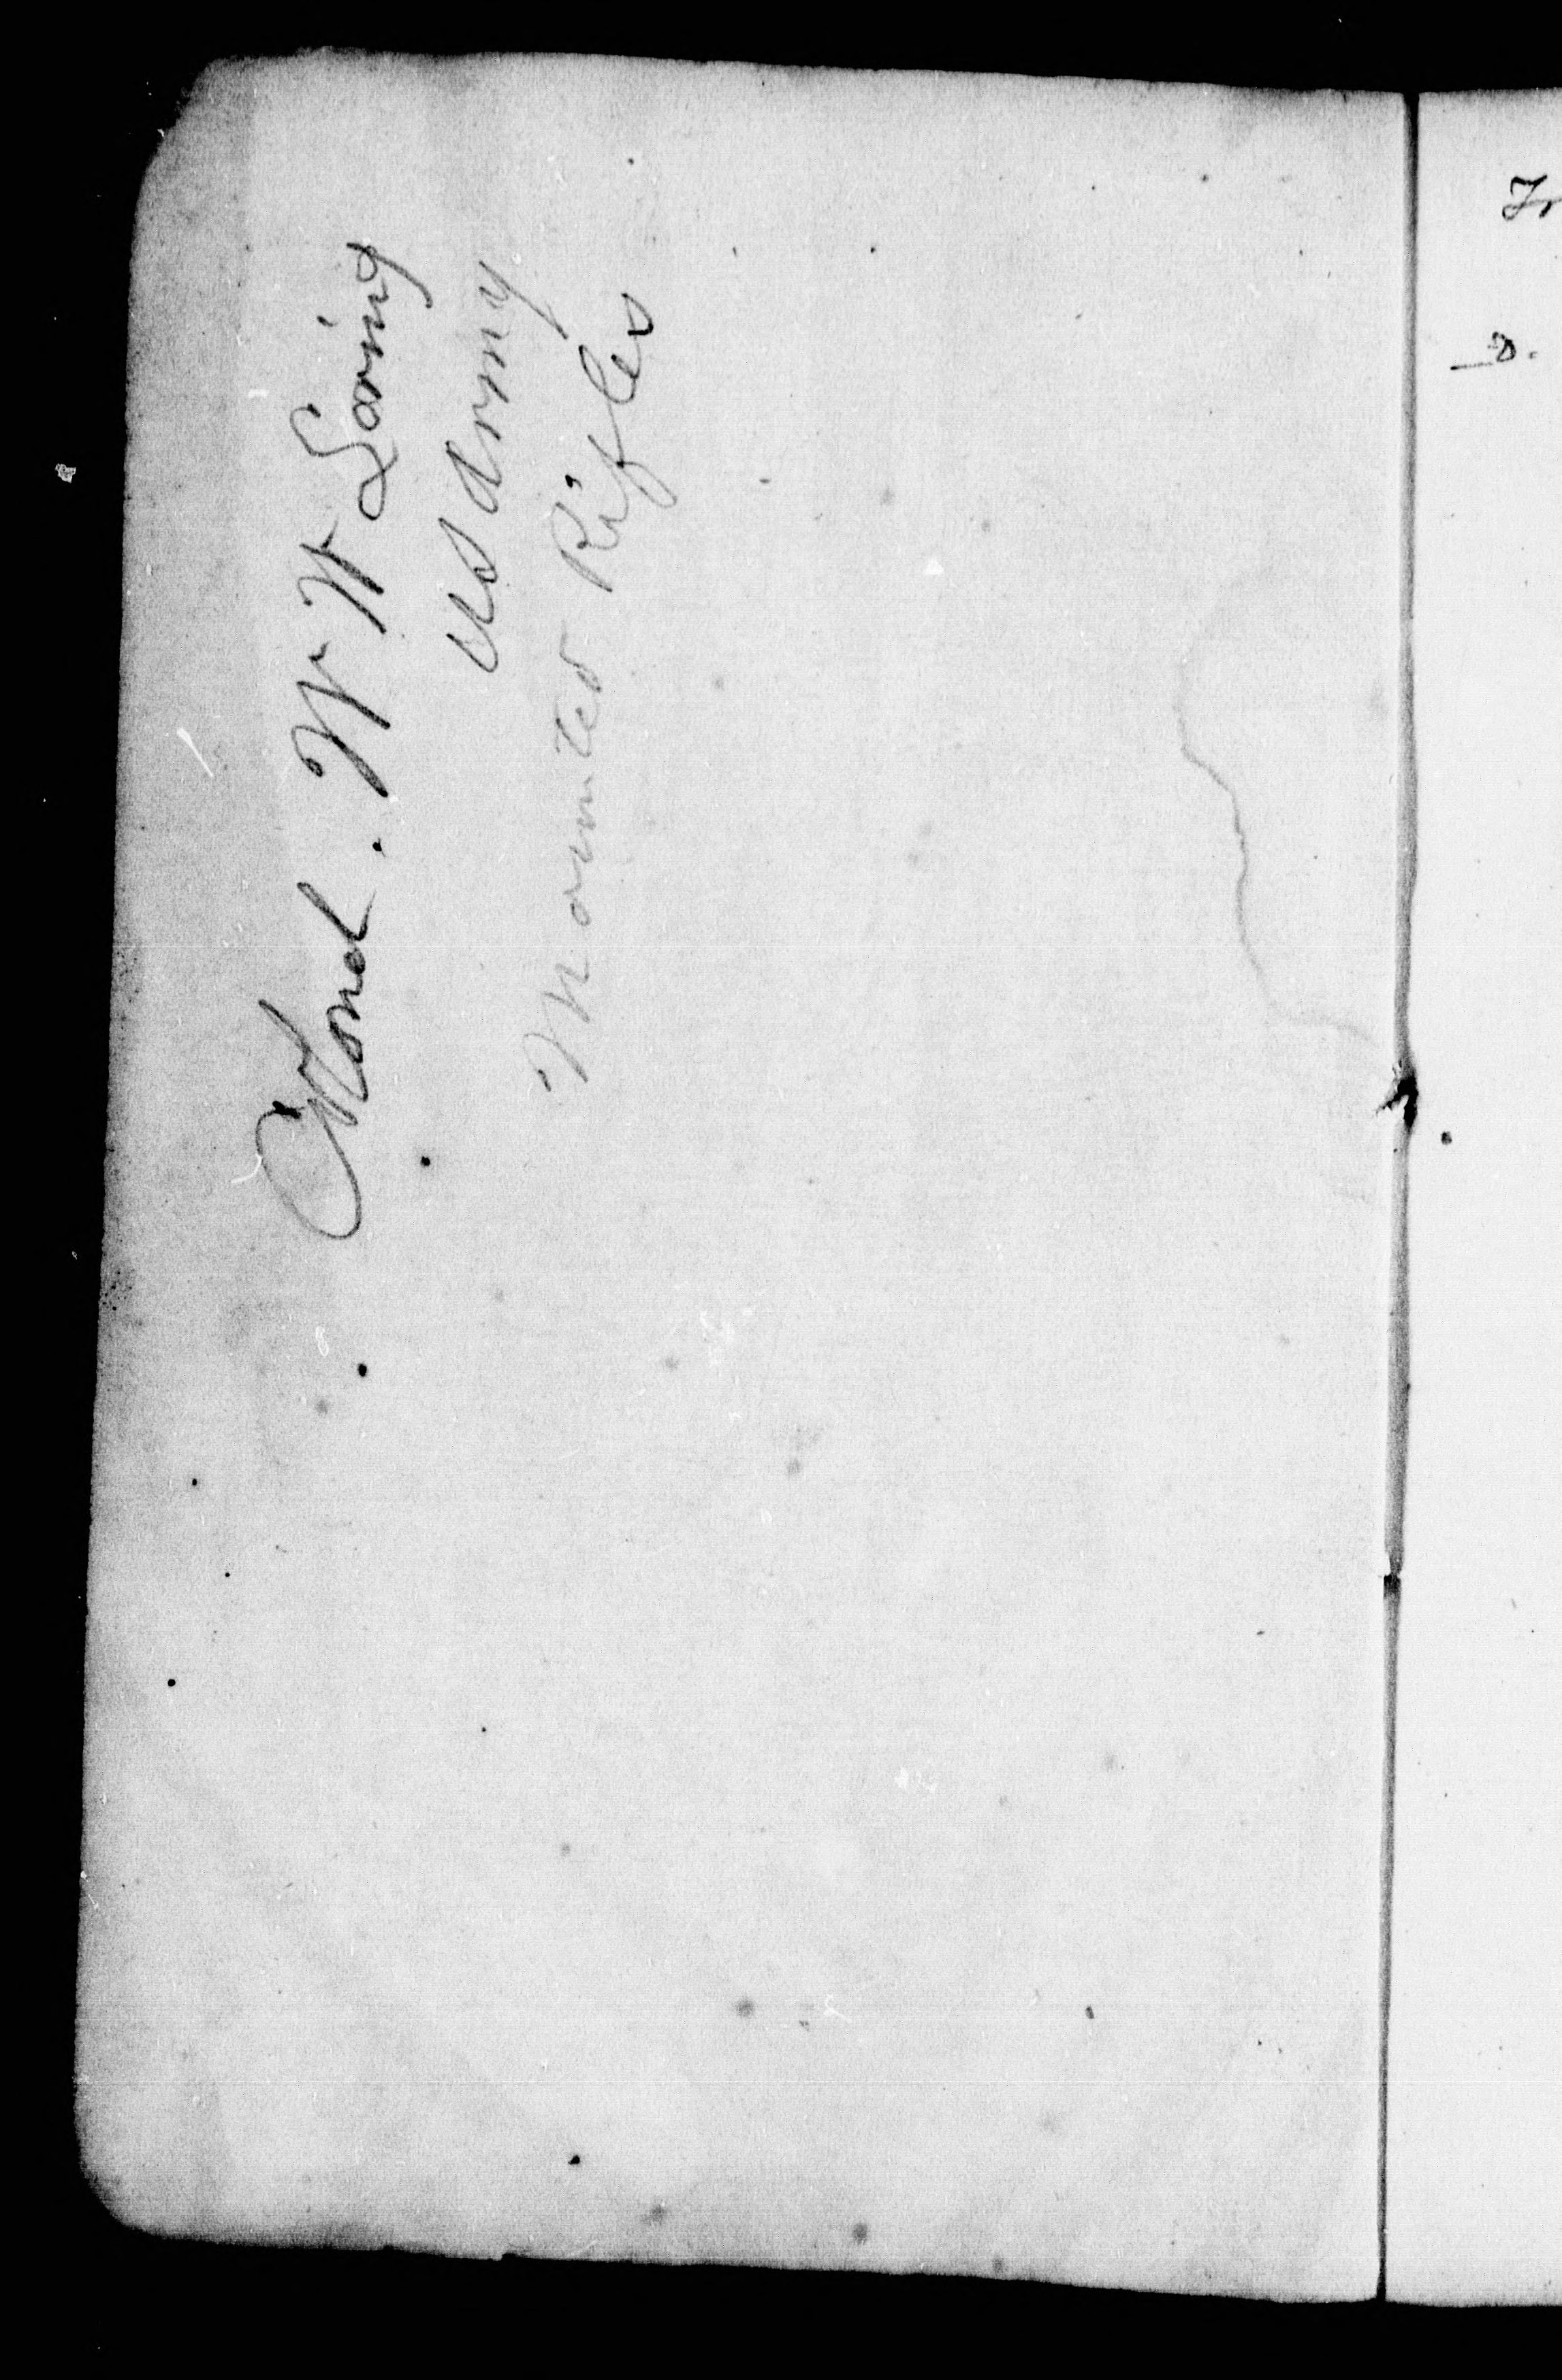 Colonel. W W Loring
US Army
Mounted Rifles